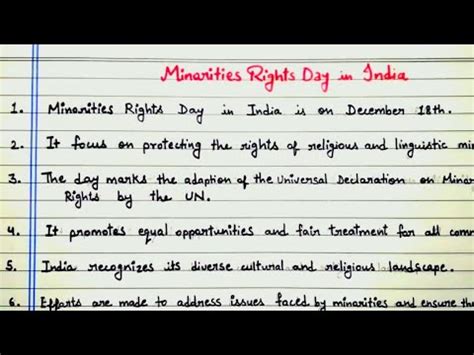 Minarities Rights Day in India
1. Minarities Rights Day in India is on December 18th.
2. It focus on protecting the rights of religious and linguistic
3. The day marks the adaption of the Universal Declaration on
Rights by the UN.
4. It promotes equal opportunities and fair treatment for all
5. India recognizes its diverse cultural and religious landscape.
6. Efforts are made to address issues faced by minarities and ensure